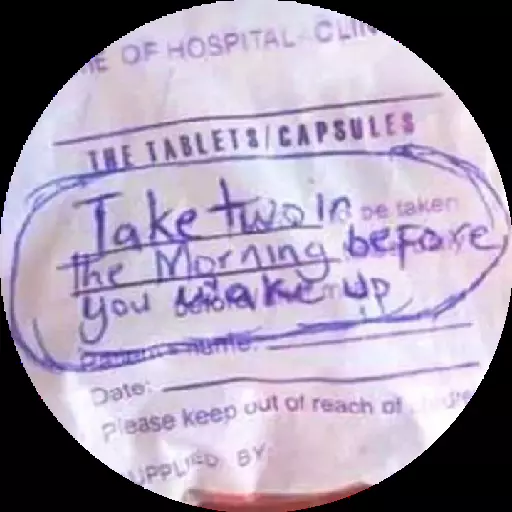 OF HOSPITAL CLIN
THE TABLETS/CAPSULES
Take two in be taken
the Morning before
you wake up
Date:
Please keep out of reach of
SUPPLIED BY: